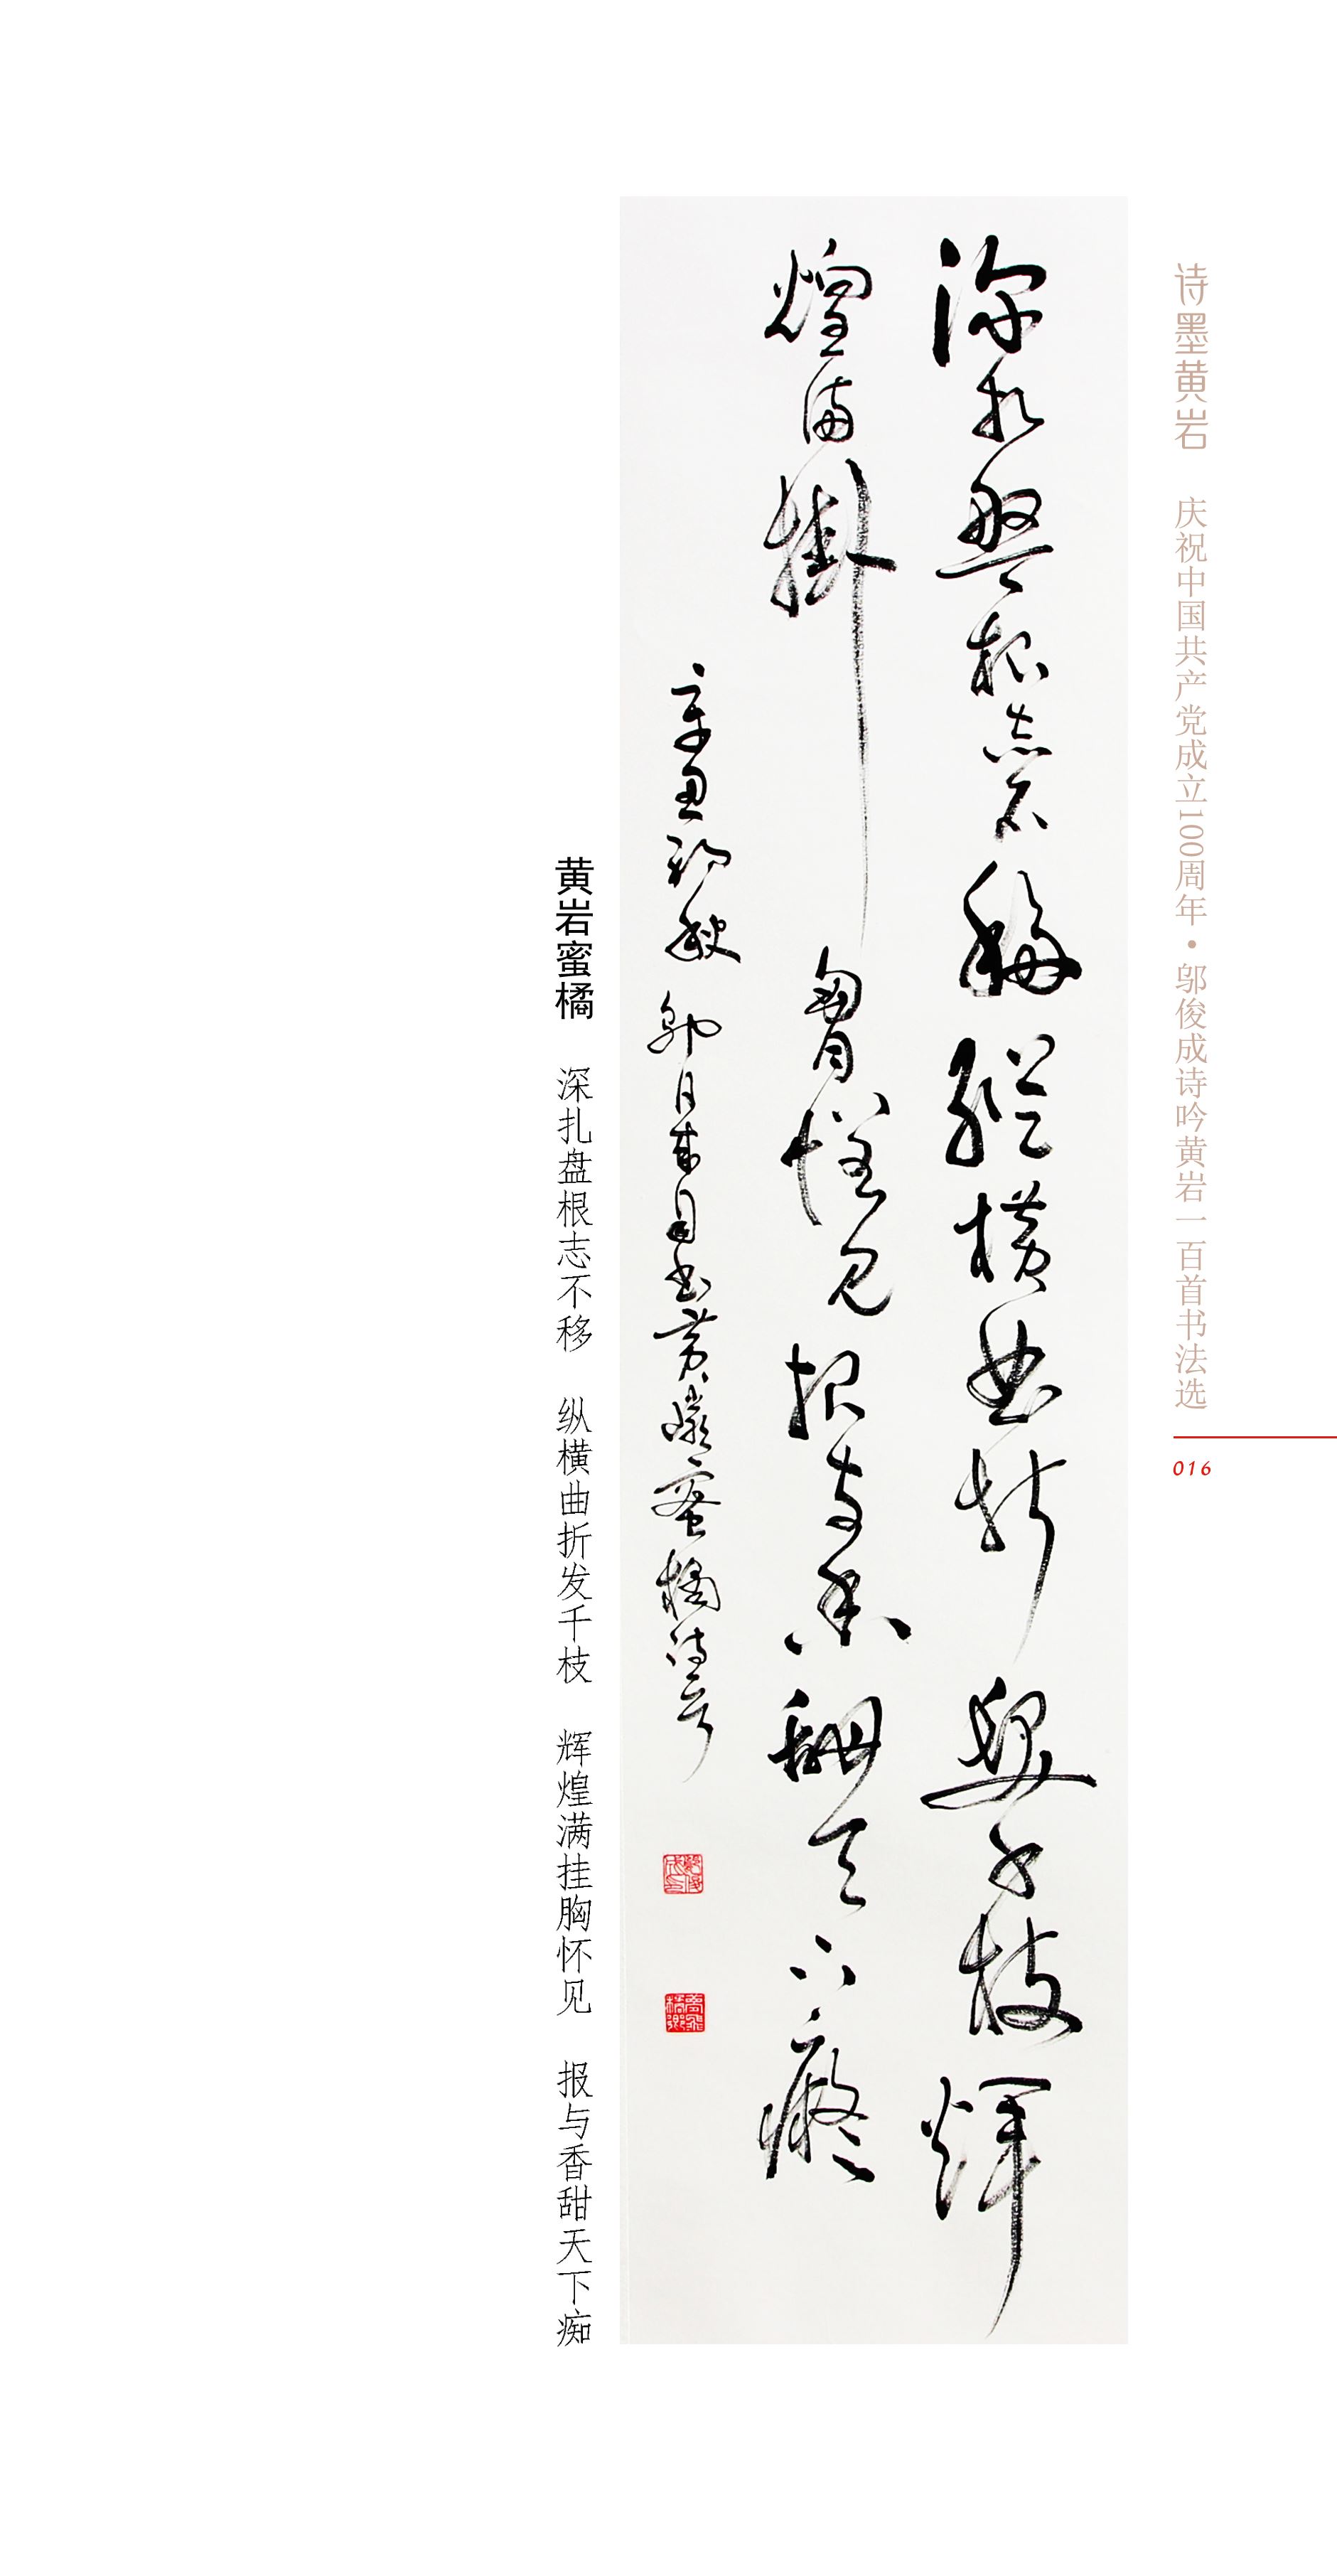 诗墨黄岩 庆祝中国共产党成立100周年·邬俊成诗吟黄岩一百首书法选
016
深扎盘根志不移纵横曲折发千枝辉
煌满挂胸怀见报与香甜天下痴
辛丑初秋邬俊成自书黄岩蜜橘诗
黄岩蜜橘 深扎盘根志不移 纵横曲折发千枝 辉煌满挂胸怀见 报与香甜天下痴